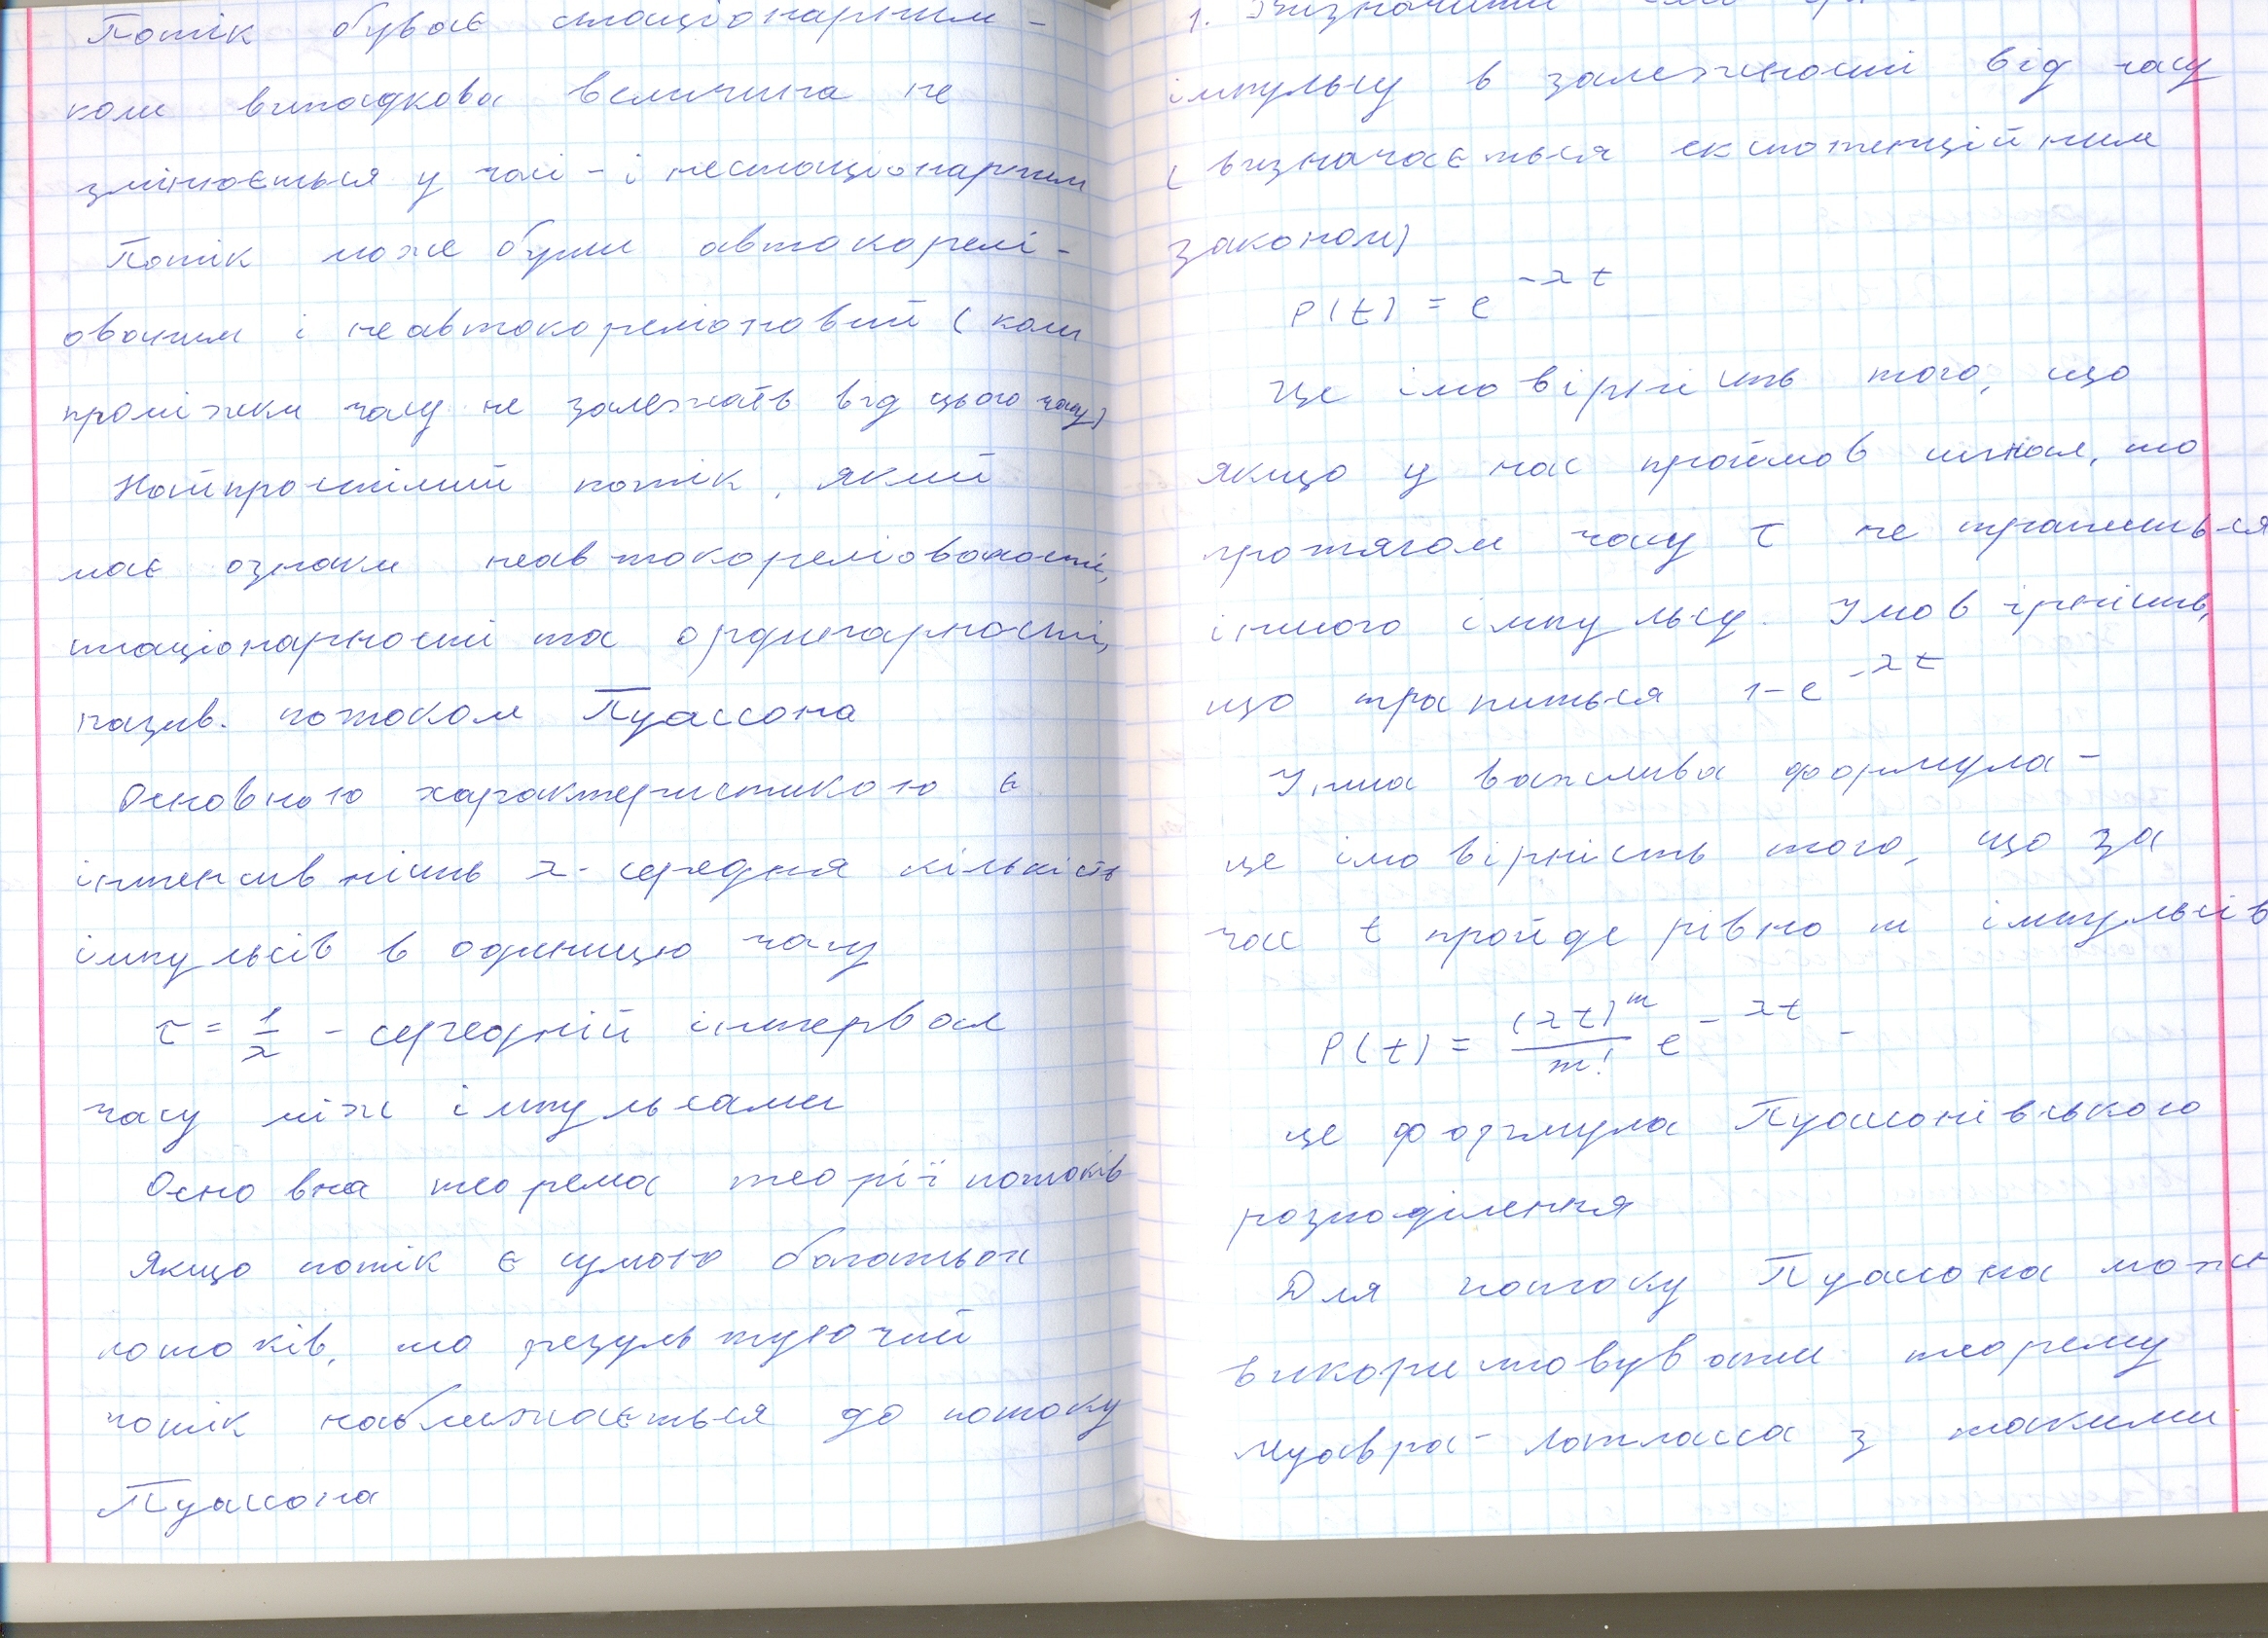 Потік буває стаціонарним -
коли випадкова величина не
змінюється у часі - і нестаціонарним
Потік може бути автокорелі-
ованим і неавтокорельовний (коли
проміжки часу не залежать від цього часу)
Найпростіший потік, який
має ознаки неавтокореліованості,
стаціонарності та ординарності,
назив. потоком Пуассона
Основною характеристикою є
інтенсивність λ - середня кількість
імпульсів в одиницю часу
τ = 1/λ - середній інтервал
часу між імпульсами
Основна теорема теорії потоків
Якщо потік є сумою багатьох
потоків, то результуючий
потік наближається до потоку
Пуассона
1. Визначити
імпульсу в залежності від часу
(визначається експотенційним
законом)
P(t) = e^{-λt}
Це імовірність того, що
якщо у нас пройшов сигнал, то
протягом часу τ не трапиться
іншого імпульсу. Імовірність,
що трапиться 1-e^{-λt}
Інша важлива формула -
це імовірність того, що за
час t пройде рівно m імпульсів
P(t) = (λt)^m / m! e^{-λt} -
це формула Пуассонівського
розподілення
Для потоку Пуассона можн
використовувати теорему
Муавра-Лапласса з такими